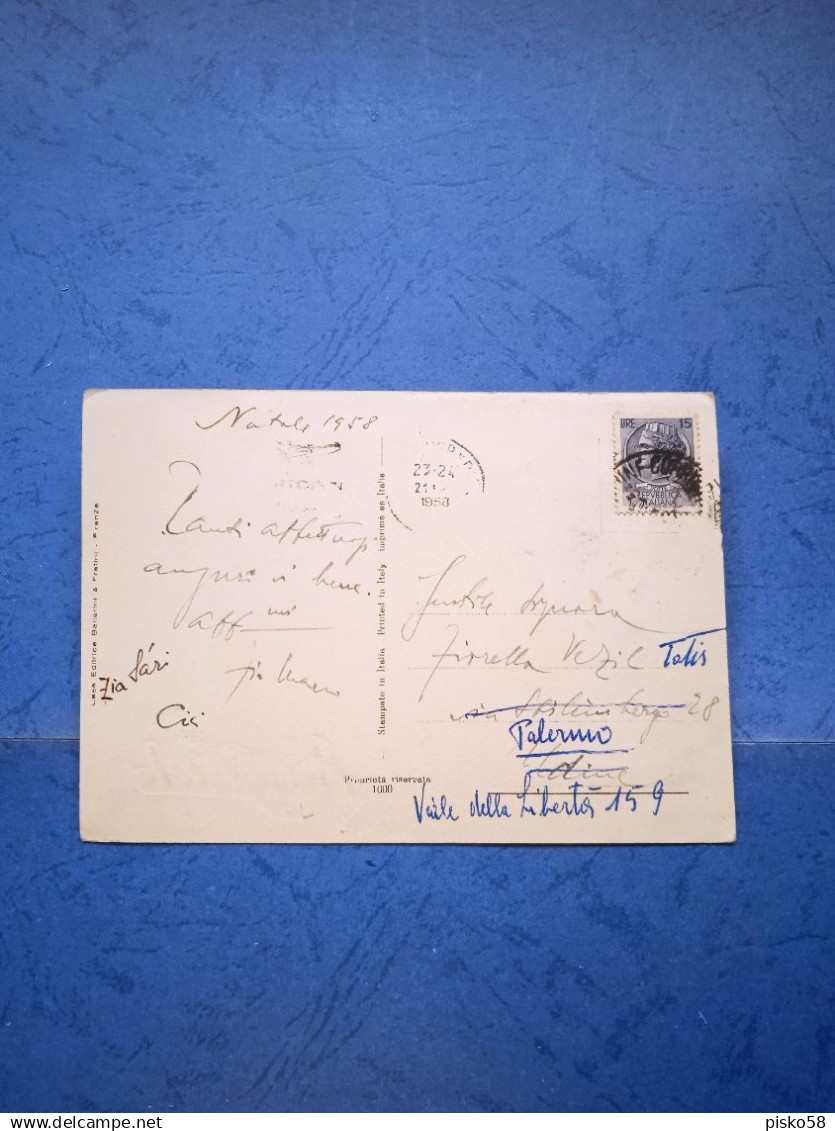 Natale 1958
23-24
1958
LIRE 15
REPVBBLICA
ITALIANA
Tanti affettuosi
auguri di bene.
aff mi
Zio Mario
Zia Sári
Cici
Casa Editrice Ballerini & Fratini - Firenze
Stampato in Italia Printed in Italy imprimé en Italie
Proprietà riservata
1000
Gentile Signora
Fiorella Vezil Tolis
via Spilimbergo 28
Palermo
Udine
Viale della Libertà 159
pisko58